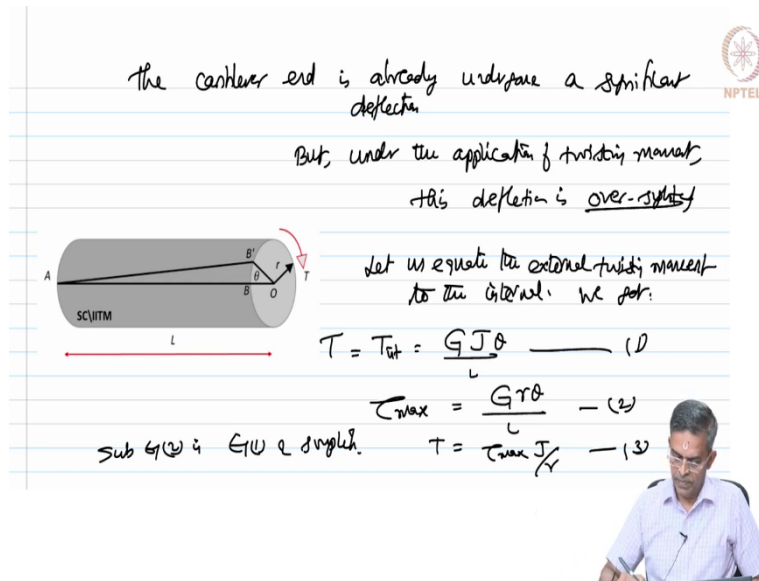 the cantilever end is already undergone a significant
deflection
But, under the application of twisting moment,
this deflection is over-
NPTEL
Let us equate the external twisting moment
to the internal. We get:
A
B'
r
θ
B
O
T
SC\IITM
L
T = Tint = GJθ/L ——— (1)
τmax = Grθ/L — (2)
Sub Eq(2) in Eq(1) & simplify.
T = τmax J/r — (3)